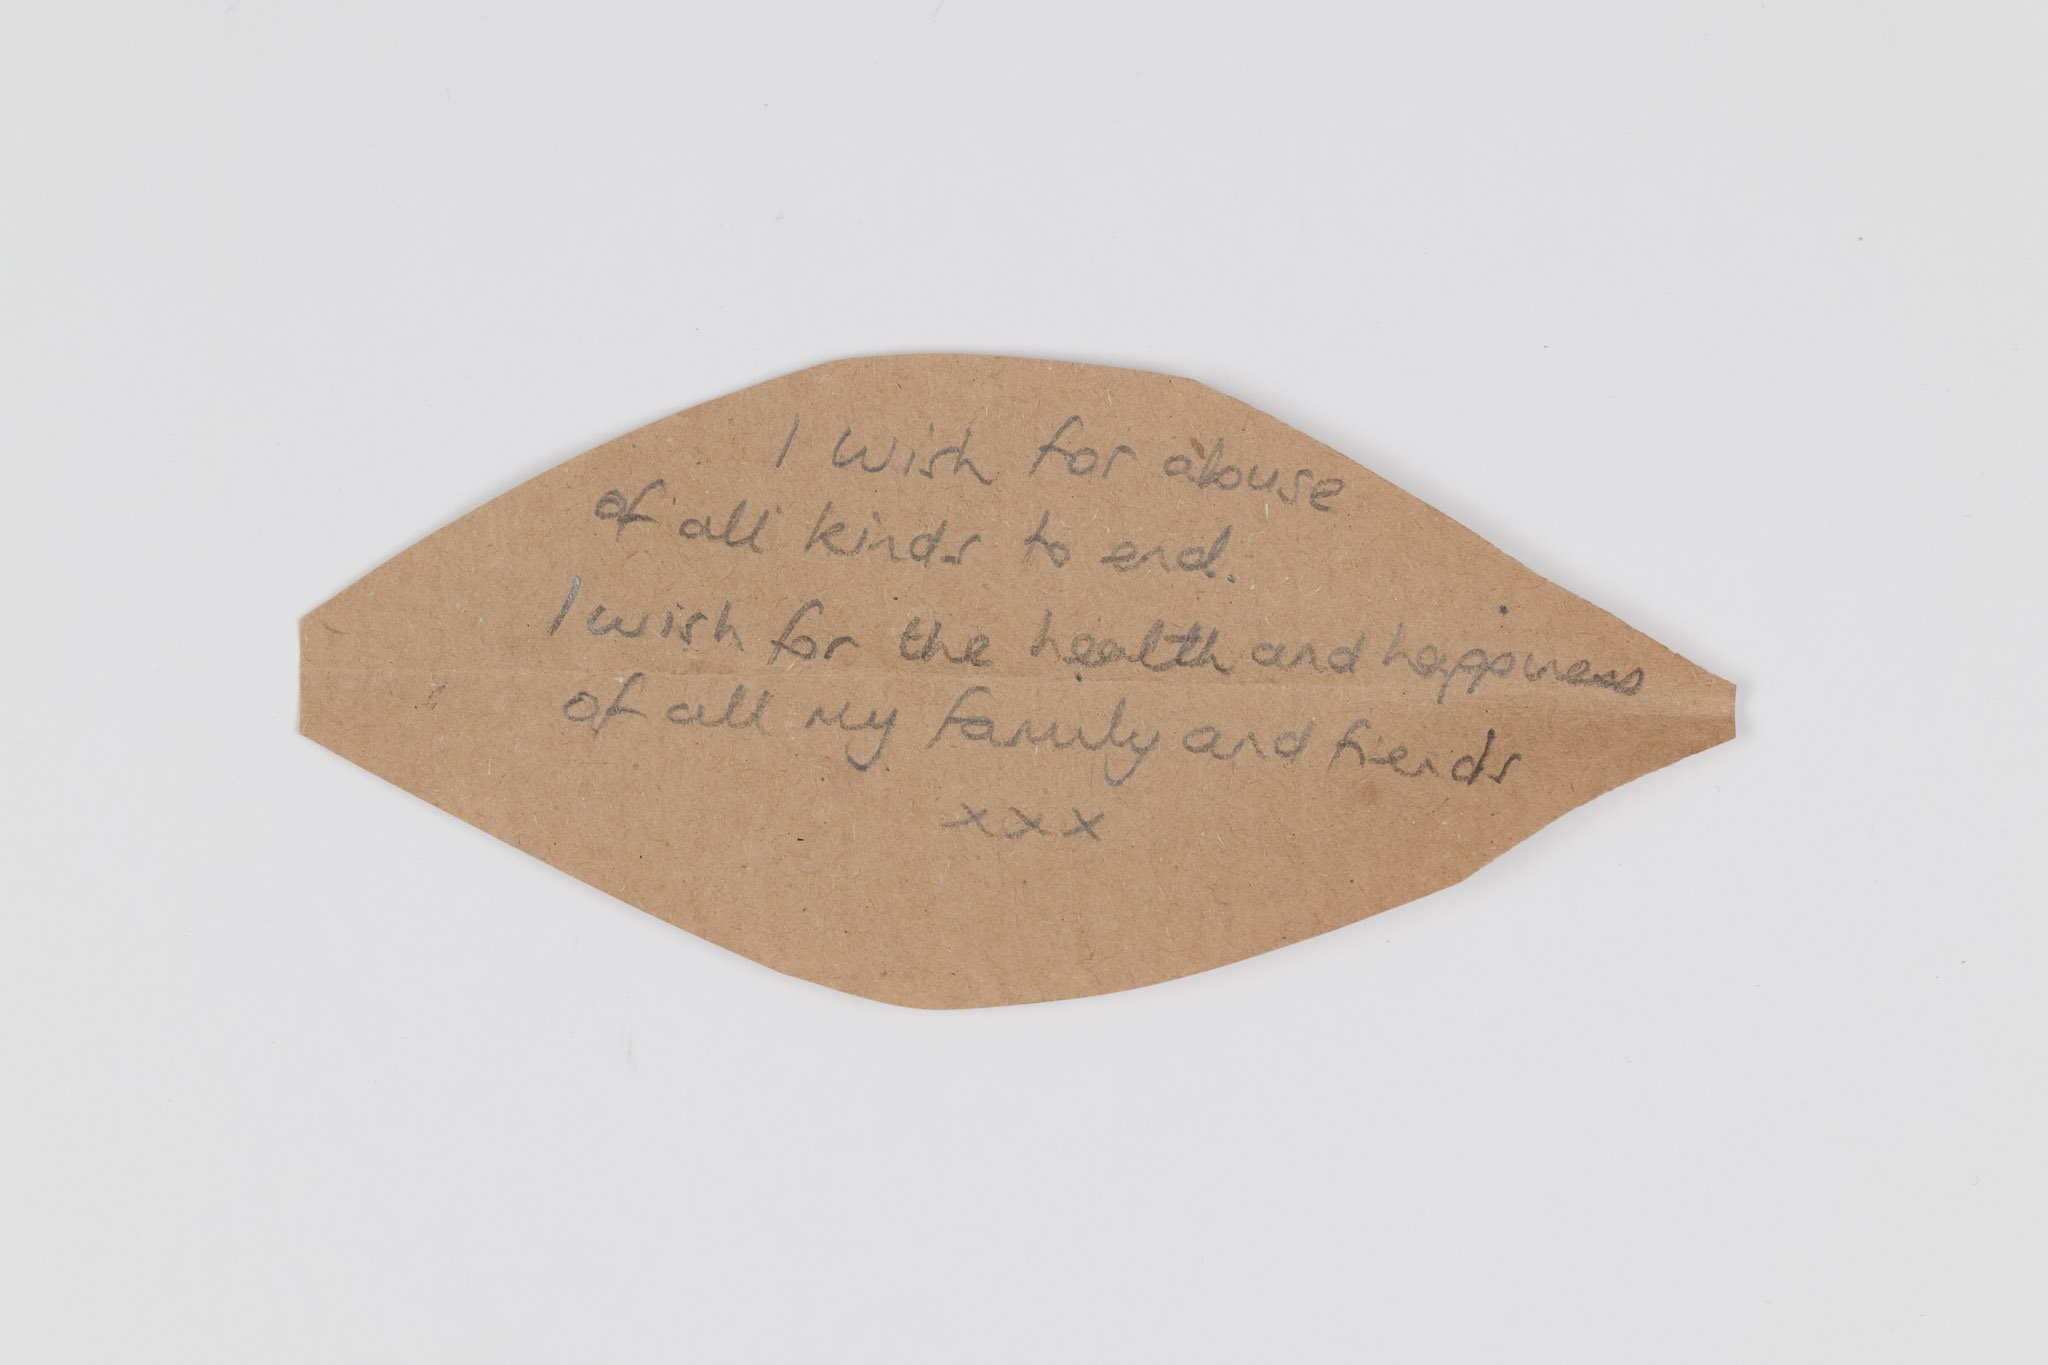 I wish for abuse
of all kinds to end.
I wish for the health and happiness
of all my family and friends
xxx